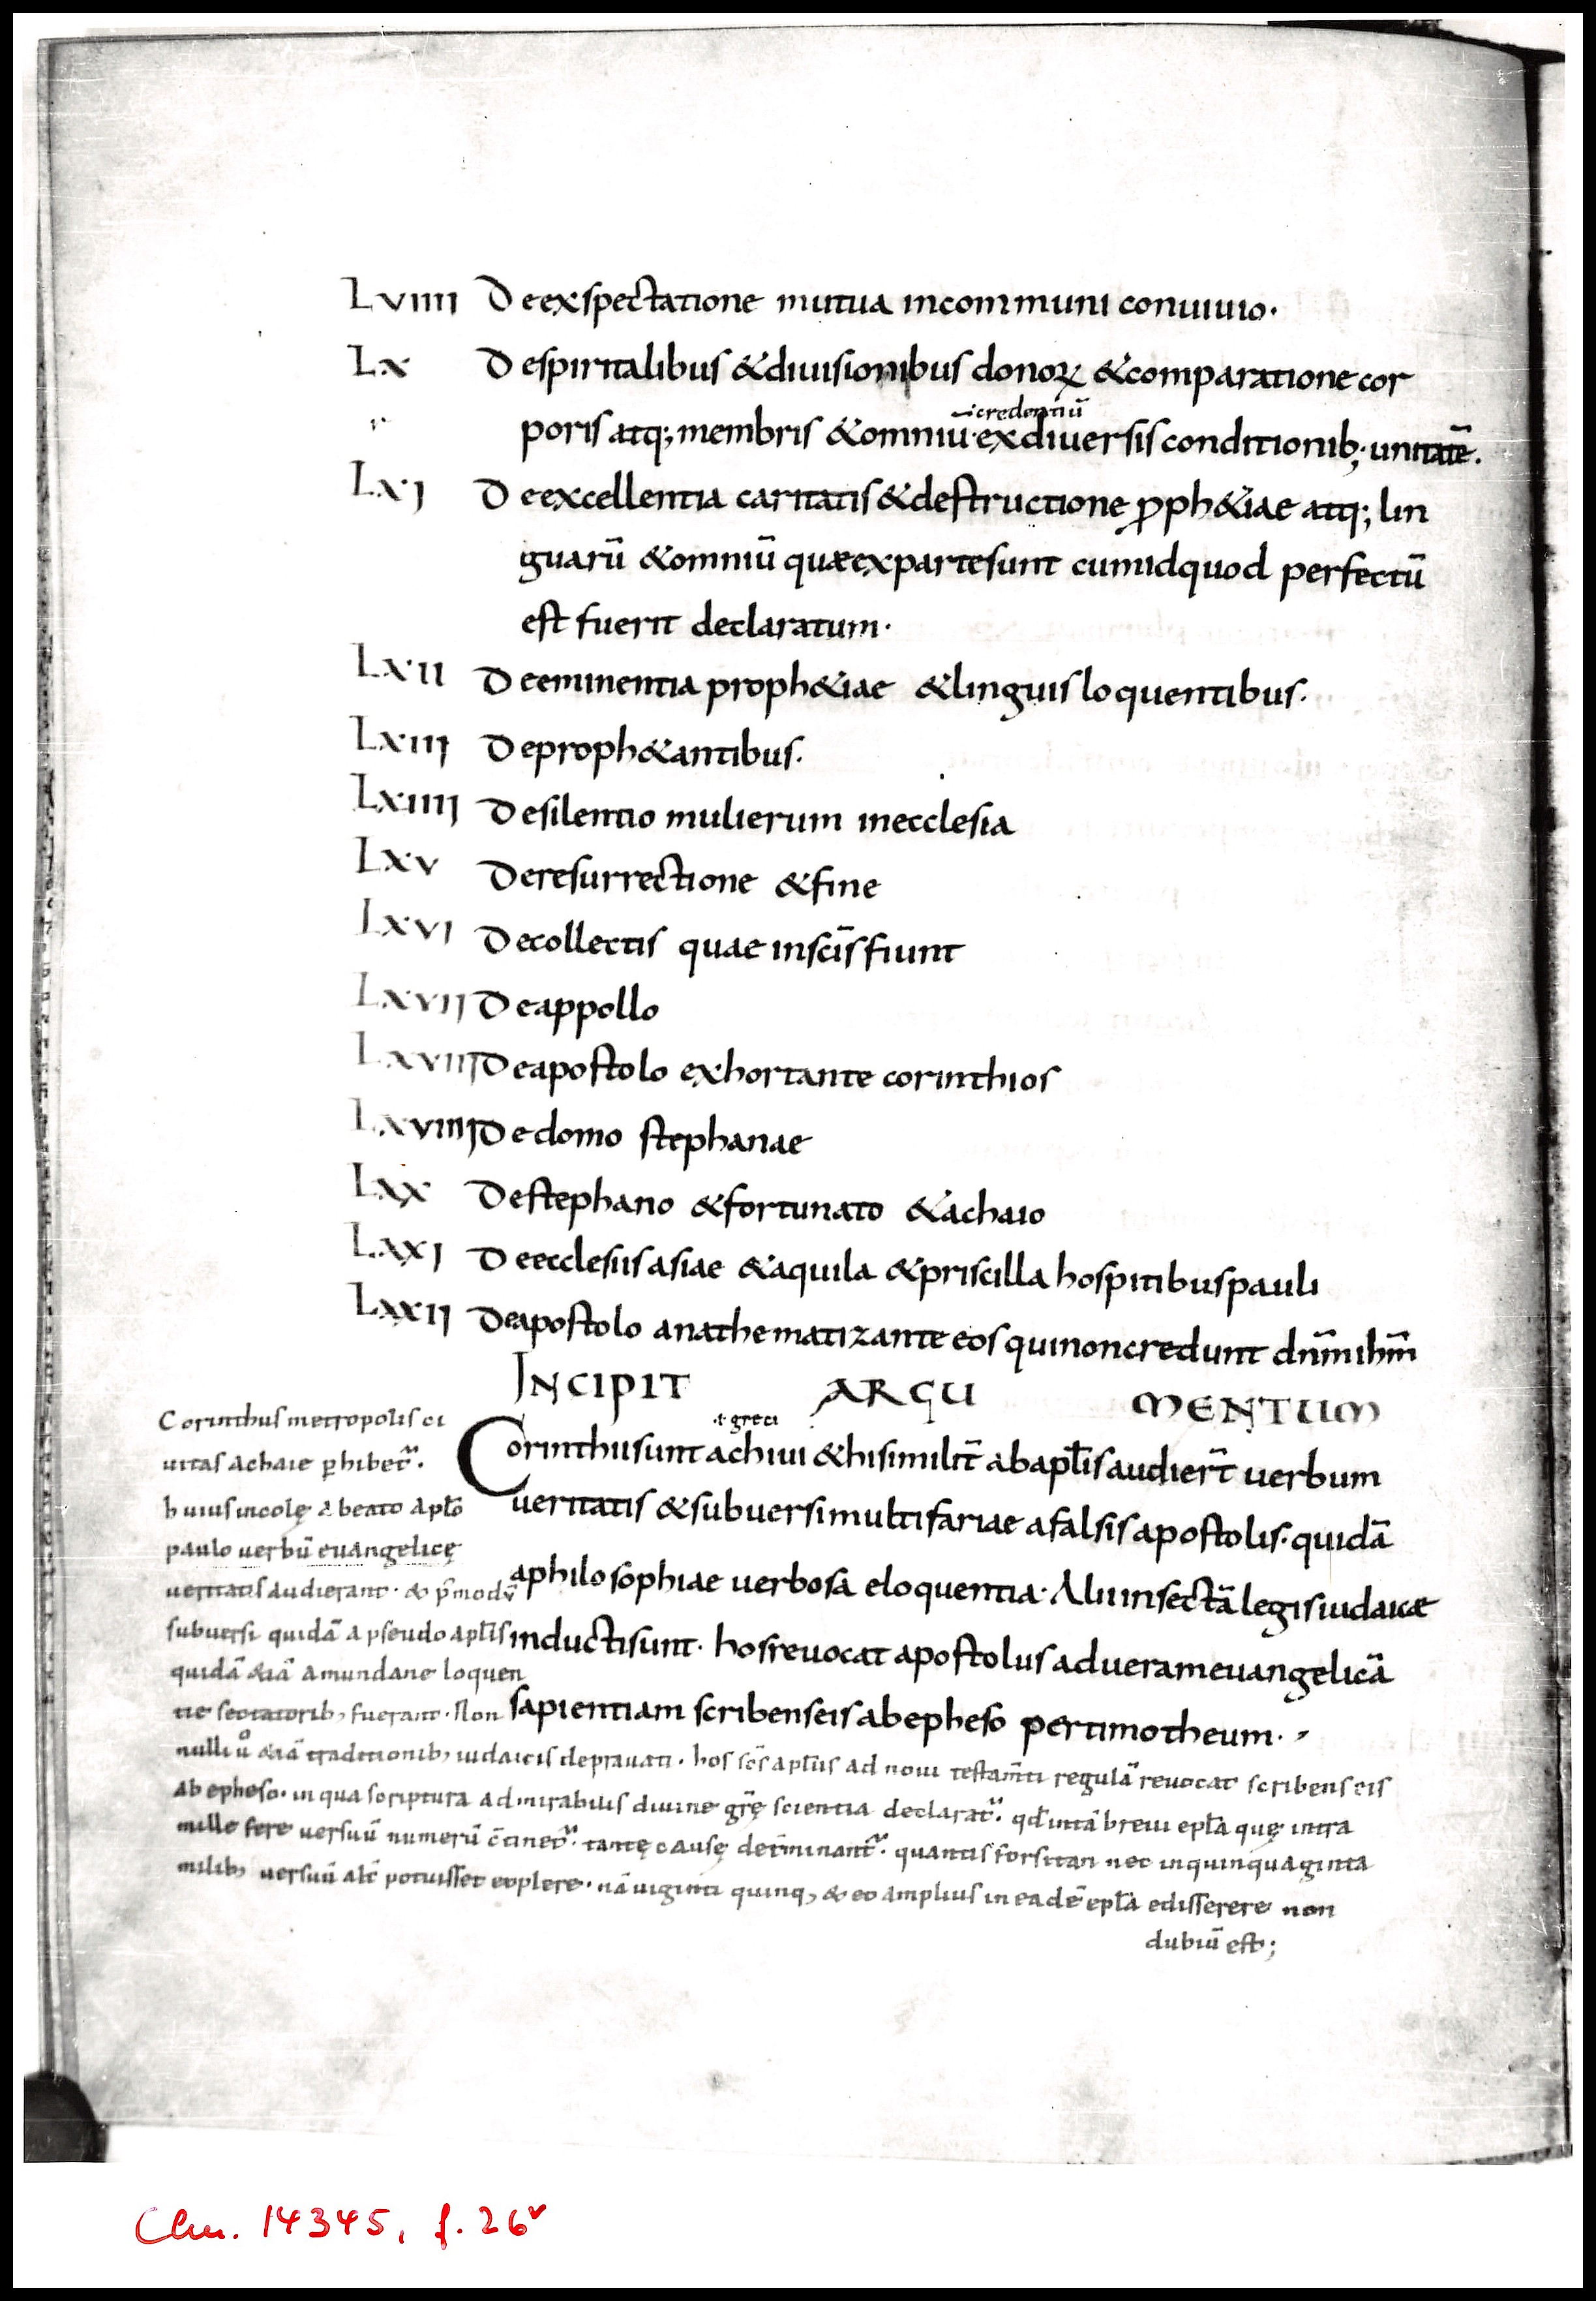 Lviiii Deexspectatione mutua incommuni conuiuio·
Lx Despiritalibus &diuisionibus donoꝝ &comparatione cor
·credentiū
poris atq; membris &omniū·exdiuersis conditionib; unitatē.
Lxi Deexcellentia caritatis &destructione ꝓph&iae atq; lin
guarū &omniū quaeexpartesunt cumidquod perfectū
est fuerit declaratum·
Lxii Deeminentia proph&iae &linguis loquentibus·
Lxiii Deproph&antibus·
Lxiiii Desilentio mulierum inecclesia
Lxv Deresurrectione &fine
Lxvi Decollectis quae insc̄īs fiunt
Lxvii Deappollo
Lxviii Deapostolo exhortante corinthios
Lxviiii Dedomo stephanae
Lxx Destephano &fortunato &achaio
Lxxi Deecclesiis asiae &aquila &priscilla hospitibuspauli
Lxxii Deapostolo anathematizante eos quinoncredunt dn̄m ih̄m
INCIPIT ARGU MENTUM
·ł· greci
Corinthiisunt achiui &hisimilit̄ abapl̄īs audier̄t uerbum
ueritatis &subuersimultifariae afalsis apostolis· quidā
aphilosophiae uerbosa eloquentia· Aliiinsectā legis iudaicae
inductisunt· hosreuocat apostolus aduerameuangelicā
sapientiam scribenseis abepheso pertimotheum·
Corinthus metropolis ci
uitas achaie ꝑhibet᷑.
huius incolę a beato apl̄o
paulo uerbū euangelicę
ueritatis audierant· & p̄modū
subuersi quidā a pseudo apl̄is
quidā &iā a mundane loquen
tie sectatorib; fuerant· Non
nulli u̇ &iā traditionib; iudaicis deprauati· hos sc̄s apl̄us ad noui testam̄ti regulā reuocat scribens eis
ab epheso· in qua scriptura admirabilis diuine gr̄ę scientia declarat᷑. qđ intā breui epl̄a quę intra
mille fere uersuū numerū c̄tinet᷑· tantę causę det̄minant᷑· quantis forsitan nec in quinquaginta
milib; uersuū alit̄ potuisset explere· nā uiginti quinq; & eo amplius in eadē epl̄a edisserere non
dubiū est;
Clm. 14345, f. 26v